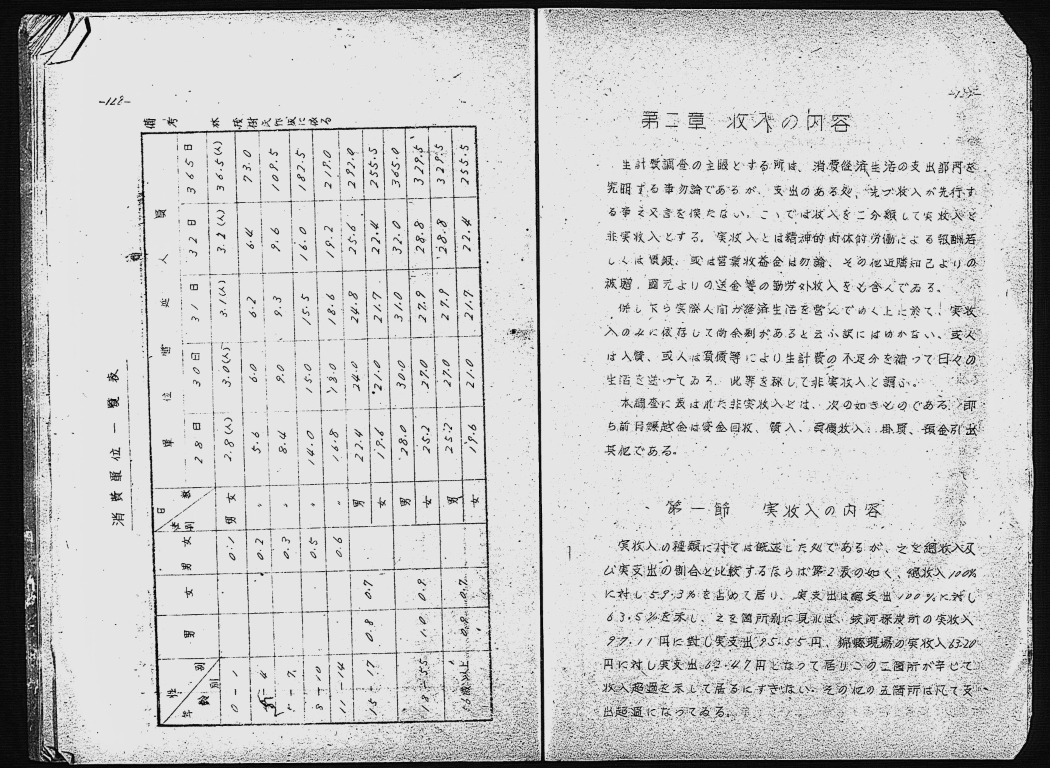 -128-
消費單位一覧表
備考
年齢別 性別 男 女 男 女 日数 性別 單位当延人員
28日 30日 31日 32日 365日
0-1 0.1 男女 2.8(人) 3.0(人) 3.1(人) 3.2(人) 36.5(人)
0.2 〃 5.6 6.0 6.2 6.4 73.0
5-7 0.3 〃 8.4 9.0 9.3 9.6 109.5
8-10 0.5 〃 14.0 15.0 15.5 16.0 182.5
11-14 0.6 〃 16.8 18.0 18.6 19.2 219.0
15-17 0.8 0.7 男 22.4 24.0 24.8 25.6 292.0
女 19.6 21.0 21.7 22.4 255.5
18-55 1.0 0.9 男 28.0 30.0 31.0 32.0 365.0
女 25.2 27.0 27.9 28.8 329.5
56歳以上 0.9 0.7 男 25.2 27.0 27.9 28.8 329.5
女 19.6 21.0 21.7 22.4 255.5
第二章 收入の内容
生計費調査の主眼とする所は、消費経済生活の支出部門を
究明する事勿論であるが、支出のある処、先づ收入が先行す
る事を言を俟たない。こゝでは收入を二分類して実收入と
非実收入とする。実收入とは精神的肉体的労働による報酬若
しくは俸給、或は営業收益金は勿論、その他近隣知己よりの
國元よりの送金等の勤労外收入をも含んでゐる。
併し乍ら実際人間が経済生活を営んでゆく上に於て、実收
入のみに依存して尚余剰があると云ふ訳にはゆかない、或人
は入質、或人は負債等により生計費の不足分を補つて日々の
生活を送つてゐる。此等を称して非実收入と謂ふ。
本調査に表はれた非実收入とは、次の如きものである。即
ち前月繰越金は資金回收、質入、負債收入、掛買、預金引出
其他である。
第一節 実收入の内容
実收入の種類に対ては既述した処であるが、之を総收入及
び実支出の割合と比較するならば第2表の如く、総收入100%
に対し59.3%を占めて居り、実支出は総支出100%に対し
63.5%を示し、之を箇所別に見れば、蛟河採炭所の実收入
97.11円に対し実支出95.55円、錦縣現場の実收入63.20
円に対し実支出62.47円となつて居りこの二箇所が辛じて
收入超過を示して居るにすぎない。その他の五箇所は凡て支
出超過になつてゐる。